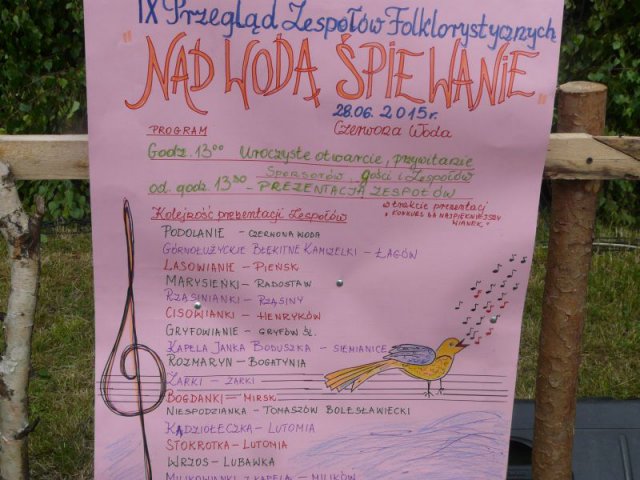 IX Przegląd Zespołów Folklorystycznych
"NAD WODĄ ŚPIEWANIE"
28.06.2015r.
Czerwona Woda
PROGRAM
Godz. 13⁰⁰ Uroczyste otwarcie, przywitanie
Sponsorów, gości i Zespołów
od godz. 13³⁰ - PREZENTACJA ZESPOŁÓW
w trakcie prezentacji
"KONKURS NA NAJPIĘKNIEJSZY
WIANEK"
Kolejność prezentacji Zespołów
PODOLANIE - CZERWONA WODA
GÓRNOŁUŻYCKIE BŁĘKITNE KAMIZELKI - ŁAGÓW
LASOWIANIE - PIEŃSK
MARYSIEŃKI - RADOSTAW
RZĄSINIANKI - RZĄSINY
CISOWIANKI - HENRYKÓW
GRYFOWIANIE - GRYFÓW ŚL.
KAPELA JANKA BODUSZKA - SIEMIANICE
ROZMARYN - BOGATYNIA
ŻARKI - ŻARKI
BOGDANKI - MIRSK
NIESPODZIANKA - TOMASZÓW BOLESŁAWIECKI
KĄDZIOŁECZKA - LUTOMIA
STOKROTKA - LUTOMIA
WRZOS - LUBAWKA
MILIKOWIANKI Z KAPELĄ - MILIKÓW